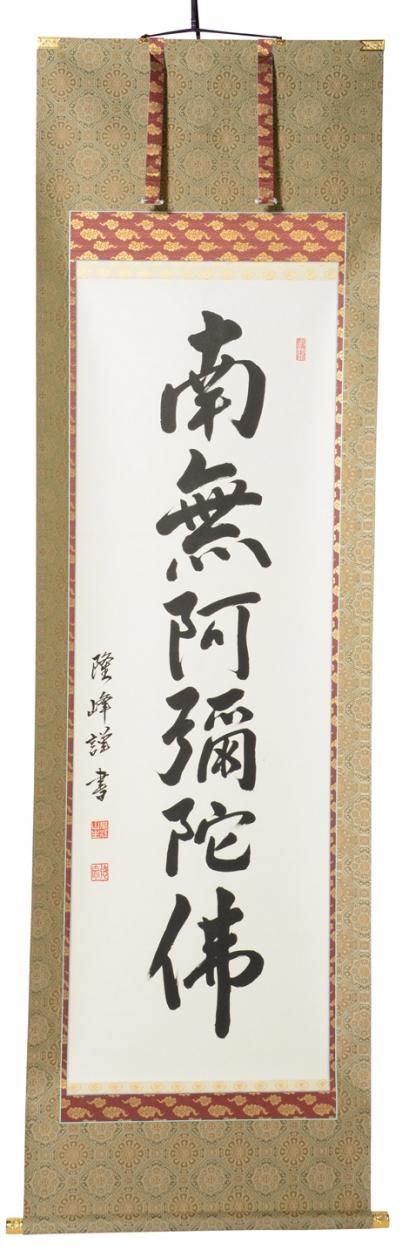 南無阿彌陀佛
隆峰謹書